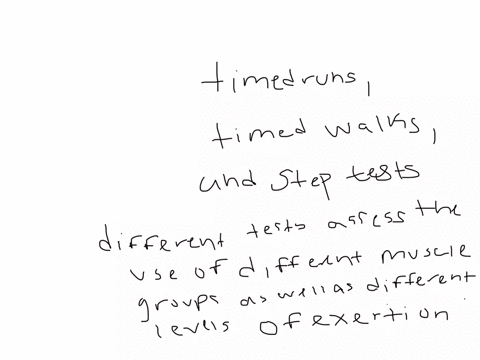 timed runs,
timed walks,
and step tests
different tests assess the
use of different muscle
groups as well as different
levels of exertion